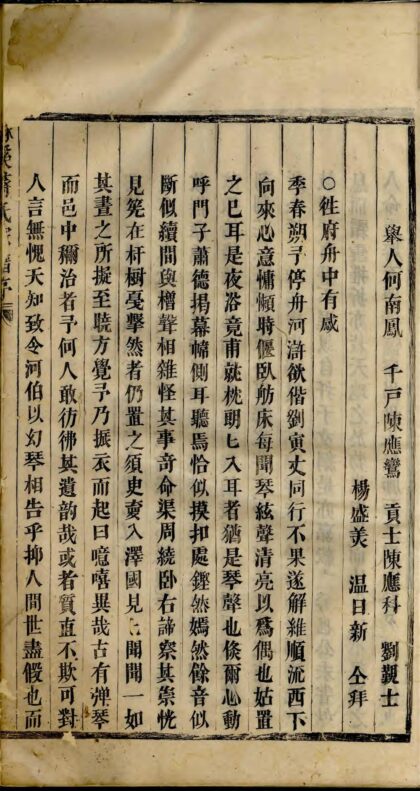 舉人何南鳳　千戸陳應鸞　貢士陳應科　劉覲士
楊盛美　温日新　仝拜
○徃府舟中有感
季春朔予停舟河滸欲偕劉寅丈同行不果遂解維順流西下
向來心意慵懶時偃臥舫床每聞琴絃聲清亮以爲偶也姑置
之已耳是夜浴竟甫就枕朗匕入耳者猶是琴聲也倐爾心動
呼門子蕭德揭幕幃側耳聽焉恰似摸扣處鏗然嫣然餘音似
斷似續間與櫓聲相雜怪其事奇命渠周繞卧右諦察其祟恍
見筦在杆樹戞擊然者仍置之須臾夌入澤國見：閙聞一如
其晝之所擬至曉方覺予乃振衣而起曰噫嘻異哉古有弹琴
而邑中稱治者予何人敢彷彿其遺韵哉或者質直不欺可對
人言無愧天知致令河伯以幻琴相告乎抑人間世盡假也而